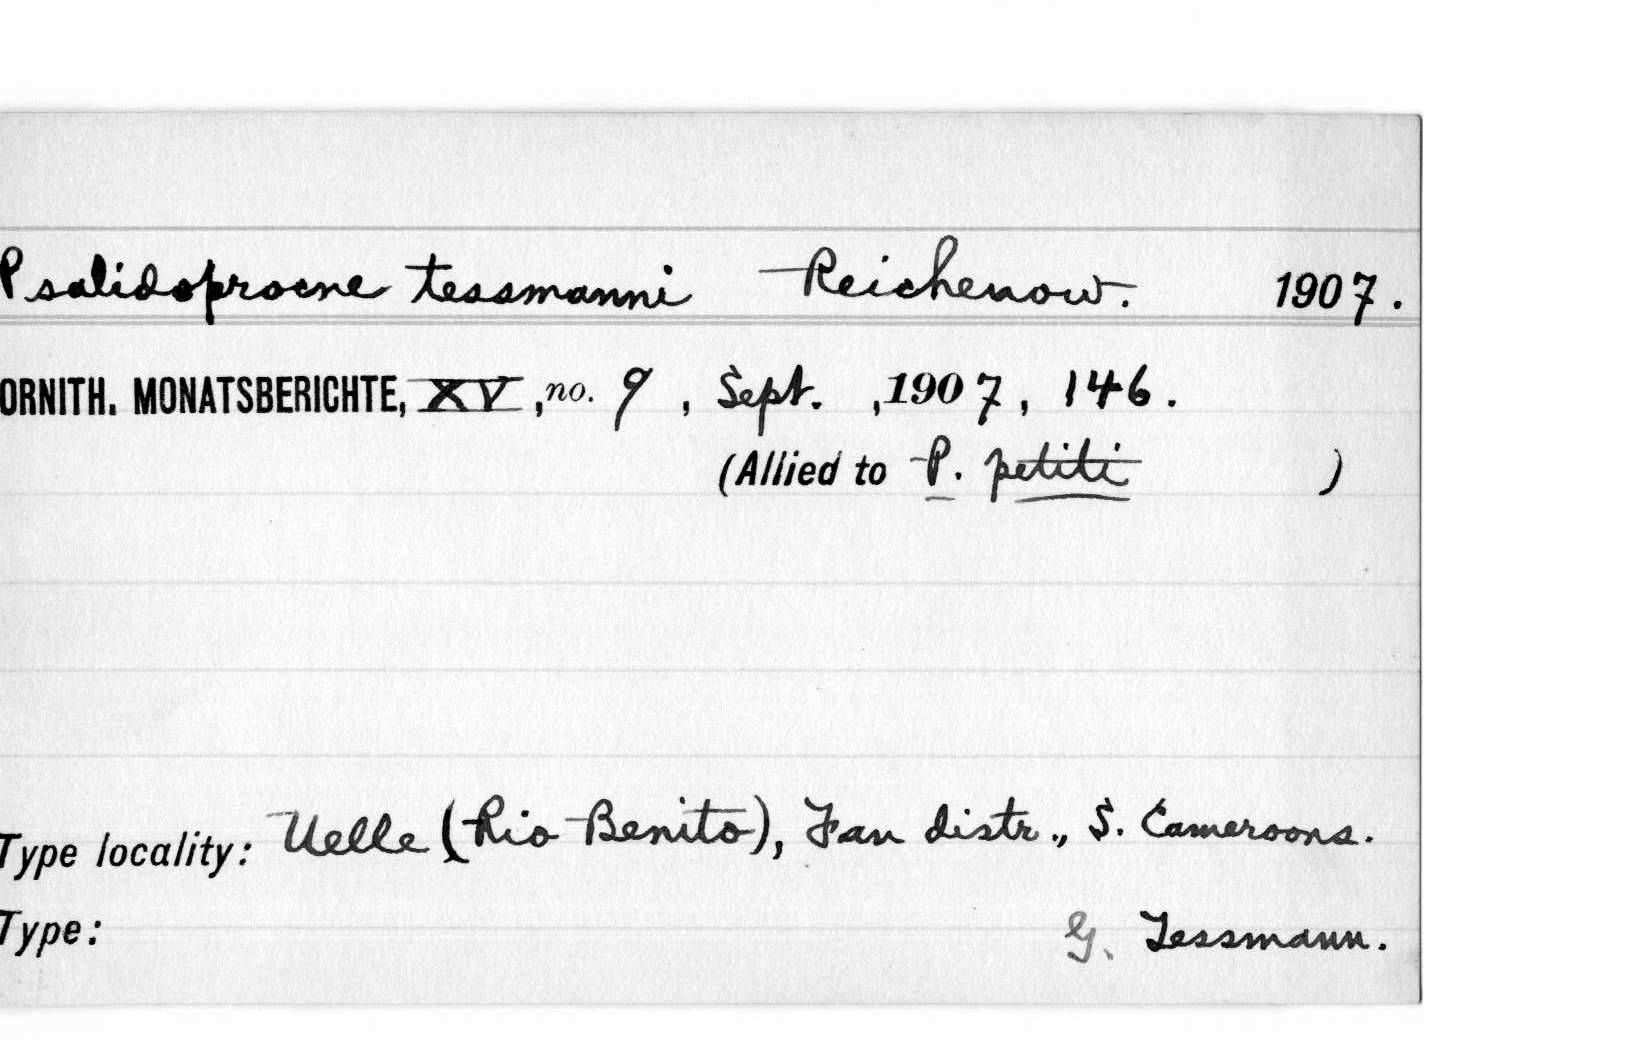 Psalidoprocne tessmanni Reichenow. 1907.
ORNITH. MONATSBERICHTE, XV, no. 9, Sept., 1907, 146.
(Allied to P. petiti )
Type locality: Uelle (Rio Benito), Fan distr., S. Cameroons.
Type: G. Tessmann.